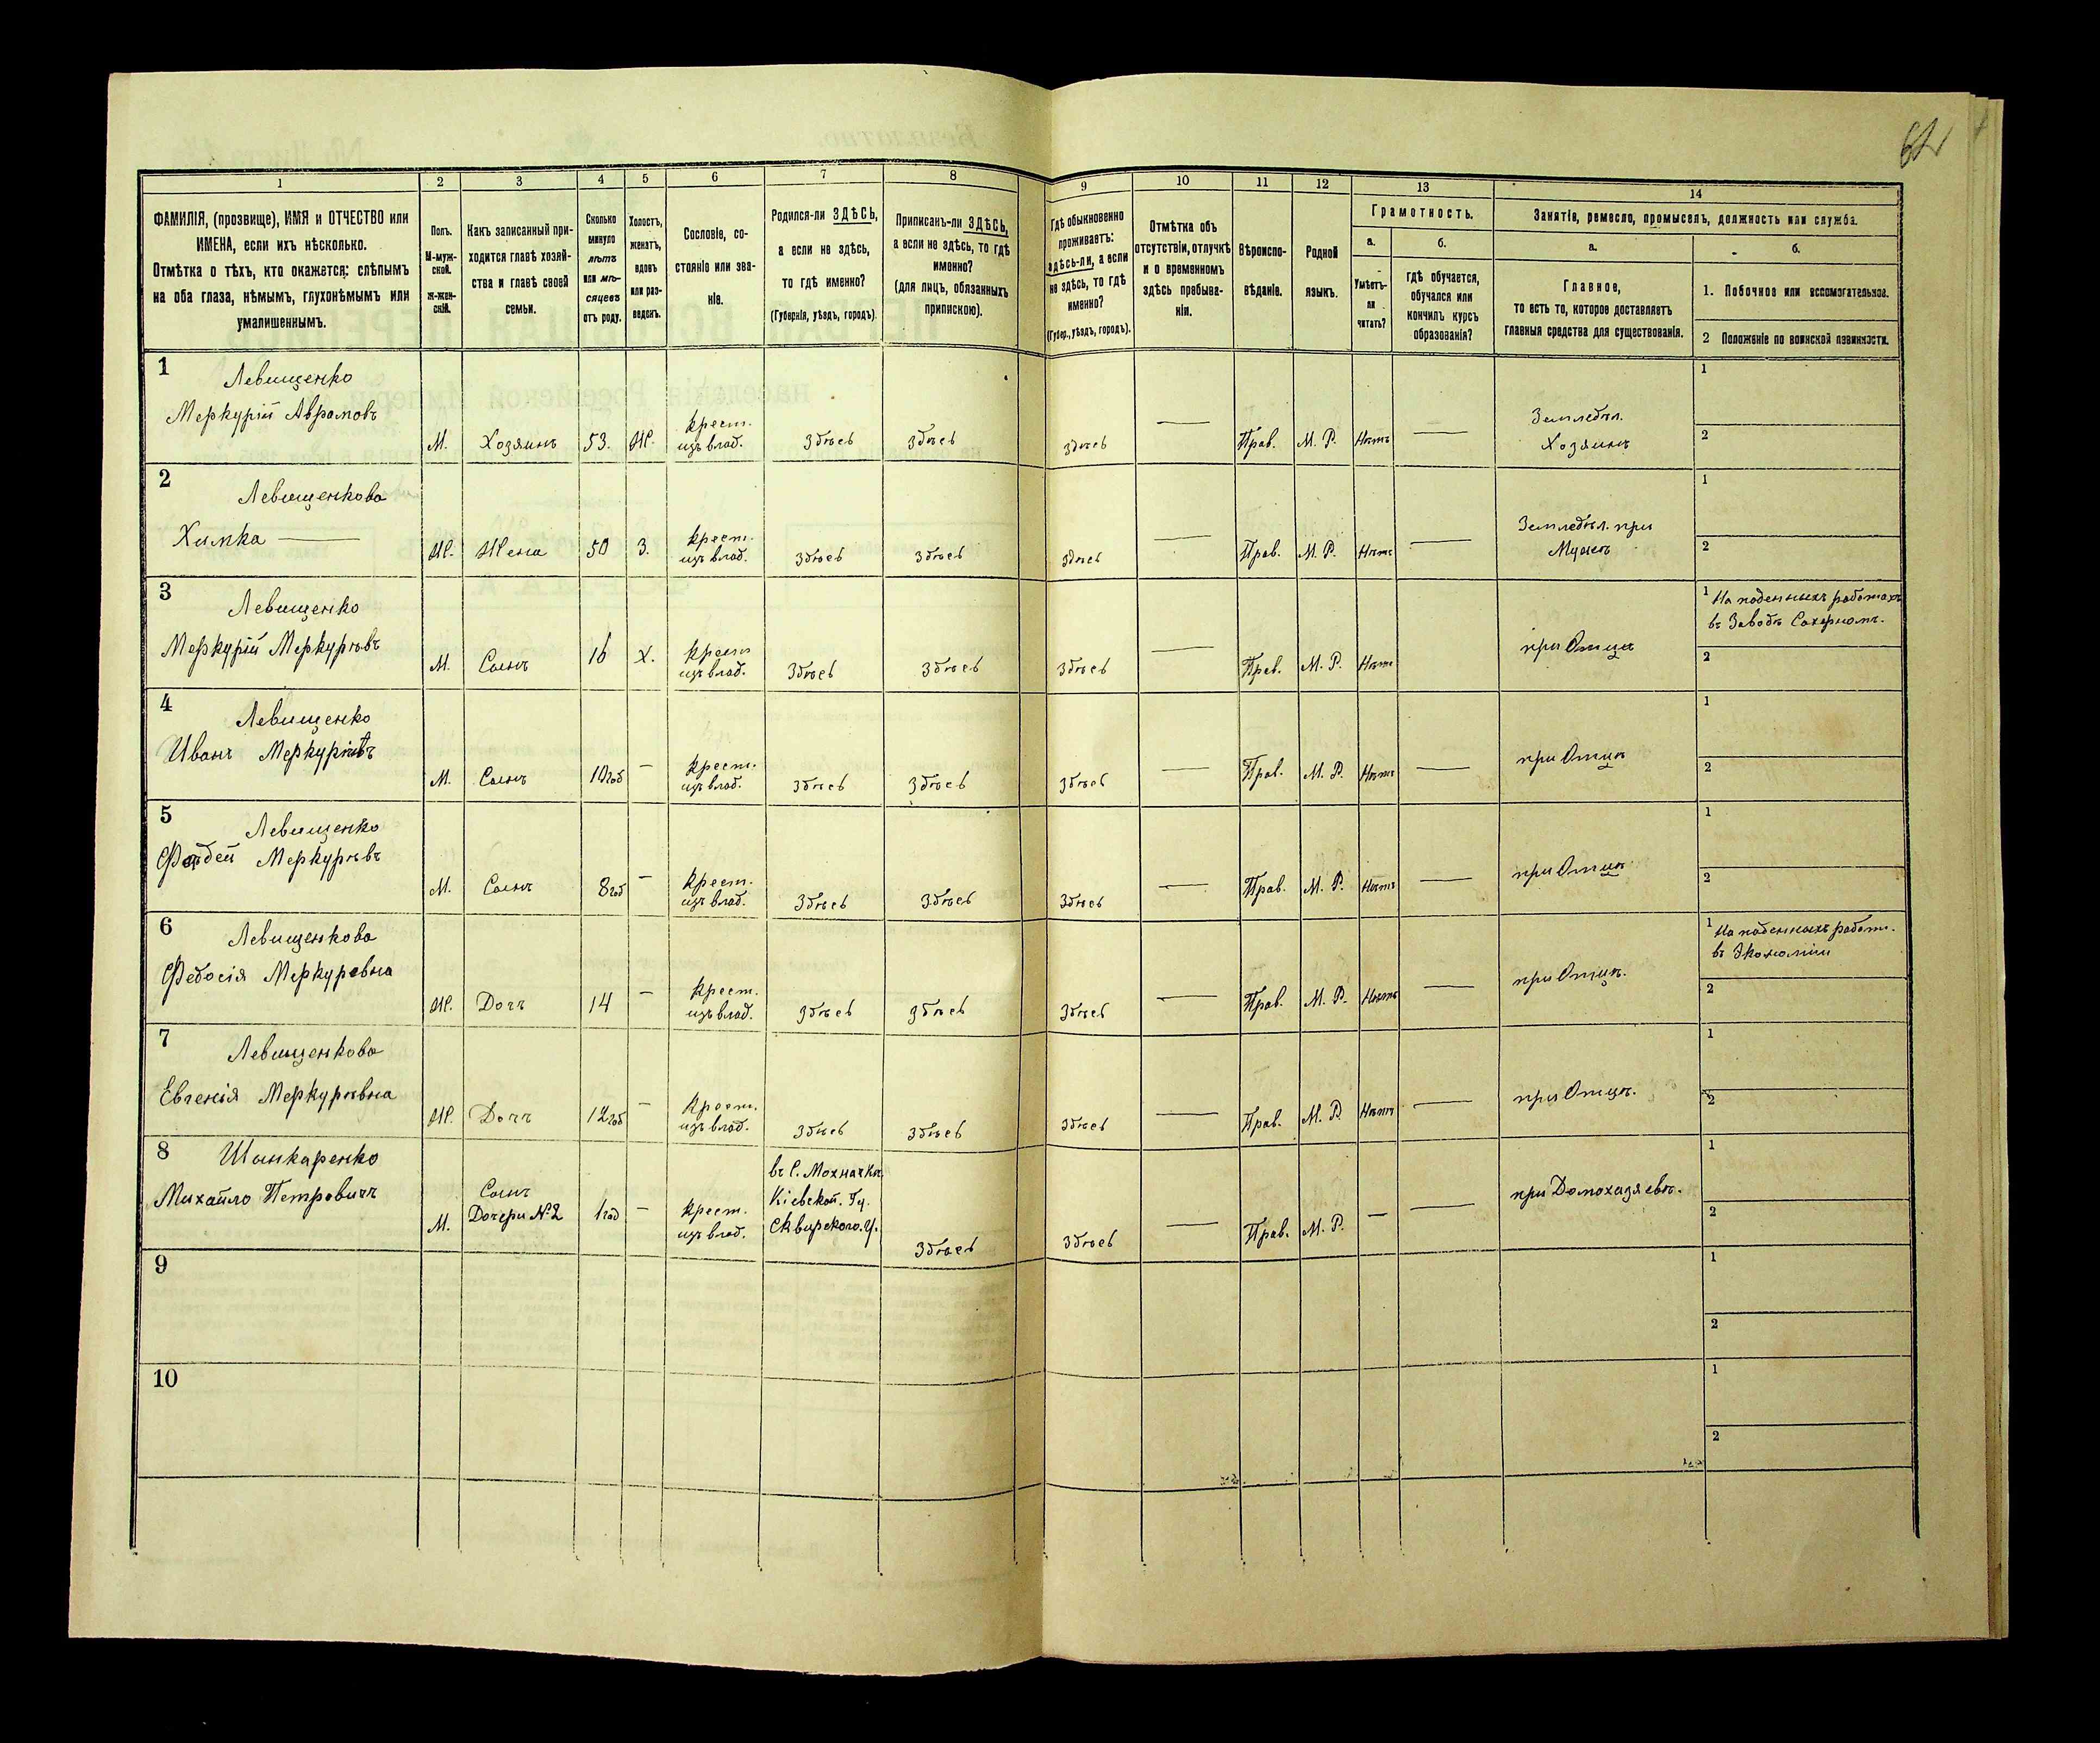 62
1
2
3
4
5
6
7
8
9
10
11
12
13
14
ФАМИЛІЯ, (прозвище), ИМЯ и ОТЧЕСТВО или
ИМЕНА, если ихъ нѣсколько.
Отмѣтка о тѣхъ, кто окажется: слѣпымъ
на оба глаза, нѣмымъ, глухонѣмымъ или
умалишеннымъ.
Полъ.
М-муж-
ской.
ж-жен-
скій.
Какъ записанный при-
ходится главѣ хозяй-
ства и главѣ своей
семьи.
Сколько
минуло
лѣтъ
или мѣ-
сяцевъ
отъ роду.
Холостъ,
женатъ,
вдовъ
или раз-
веденъ.
Сословіе, со-
стояніе или зва-
ніе.
Родился-ли ЗДѢСЬ,
а если не здѣсь,
то гдѣ именно?
(Губернія, уѣздъ, городъ).
Приписанъ-ли ЗДѢСЬ,
а если не здѣсь, то гдѣ
именно?
(для лицъ, обязанныхъ
припискою).
Гдѣ обыкновенно
проживаетъ:
здѣсь-ли, а если
не здѣсь, то гдѣ
именно?
(Губер., уѣздъ, городъ).
Отмѣтка объ
отсутствіи, отлучкѣ
и о временномъ
здѣсь пребыва-
ніи.
Вѣроиспо-
вѣданіе.
Родной
языкъ.
Грамотность.
а.
Умѣетъ-
ли
читать?
б.
Гдѣ обучается,
обучался или
кончилъ курсъ
образованія?
Занятіе, ремесло, промыселъ, должность или служба.
а.
Главное,
то есть то, которое доставляетъ
главныя средства для существованія.
б.
1. Побочное или вспомогательное.
2 Положеніе по воинской повинности.
1
Левищенко
Меркурій Аврамовъ
М.
Хозяинъ
53.
Ж.
крест.
изъ влад.
Здѣсь
Здѣсь
здѣсь
—
Прав.
М. Р.
Нѣтъ
—
Земледѣл.
Хозяинъ
1
2
2
Левищенкова
Химка —
Ж.
Жена
50
З.
крест.
изъ влад.
Здѣсь
Здѣсь
здѣсь
—
Прав.
М. Р.
Нѣтъ
—
Земледѣл. при
Мужѣ
1
2
3
Левищенко
Меркурій Меркурѣвъ
М.
Сынъ
16
Х.
крест
изъ влад.
Здѣсь
Здѣсь
Здѣсь
—
Прав.
М. Р.
Нѣтъ
при Отцѣ
1 На поденныхъ работахъ
въ Заводѣ Сахарномъ.
2
4
Левищенко
Иванъ Меркурѣвъ
М.
Сынъ
10 год
—
крест.
изъ влад.
Здѣсь
Здѣсь
Здѣсь
—
Прав.
М. Р.
Нѣтъ
—
при Отцѣ
1
2
5
Левищенко
Фадей Меркурѣвъ
М.
Сынъ
8 год
—
крест.
изъ влад.
Здѣсь
Здѣсь
Здѣсь
—
Прав.
М. Р.
Нѣтъ
—
при Отцѣ
1
2
6
Левищенкова
Федосія Меркуревна
Ж.
Дочъ
14
—
крест.
изъ влад.
Здѣсь
Здѣсь
Здѣсь
—
Прав.
М. Р.
Нѣтъ
—
при Отцѣ.
1 На поденныхъ работ.
въ Экономіи
2
7
Левищенкова
Евгенія Меркурѣвна
Ж.
Дочъ
12 год
—
крест.
изъ влад.
Здѣсь
Здѣсь
Здѣсь
—
Прав.
М. Р.
Нѣтъ
—
при Отцѣ.
1
2
8
Шинкаренко
Михайло Петровичъ
М.
Сынъ
Дочери №2
1 год
—
крест.
изъ влад.
въ С. Мохначкѣ
Кіевской. Гу.
Сквирского. У.
Здѣсь
Здѣсь
—
Прав.
М. Р.
—
—
при Домохазяевѣ.
1
2
9
1
2
10
1
2